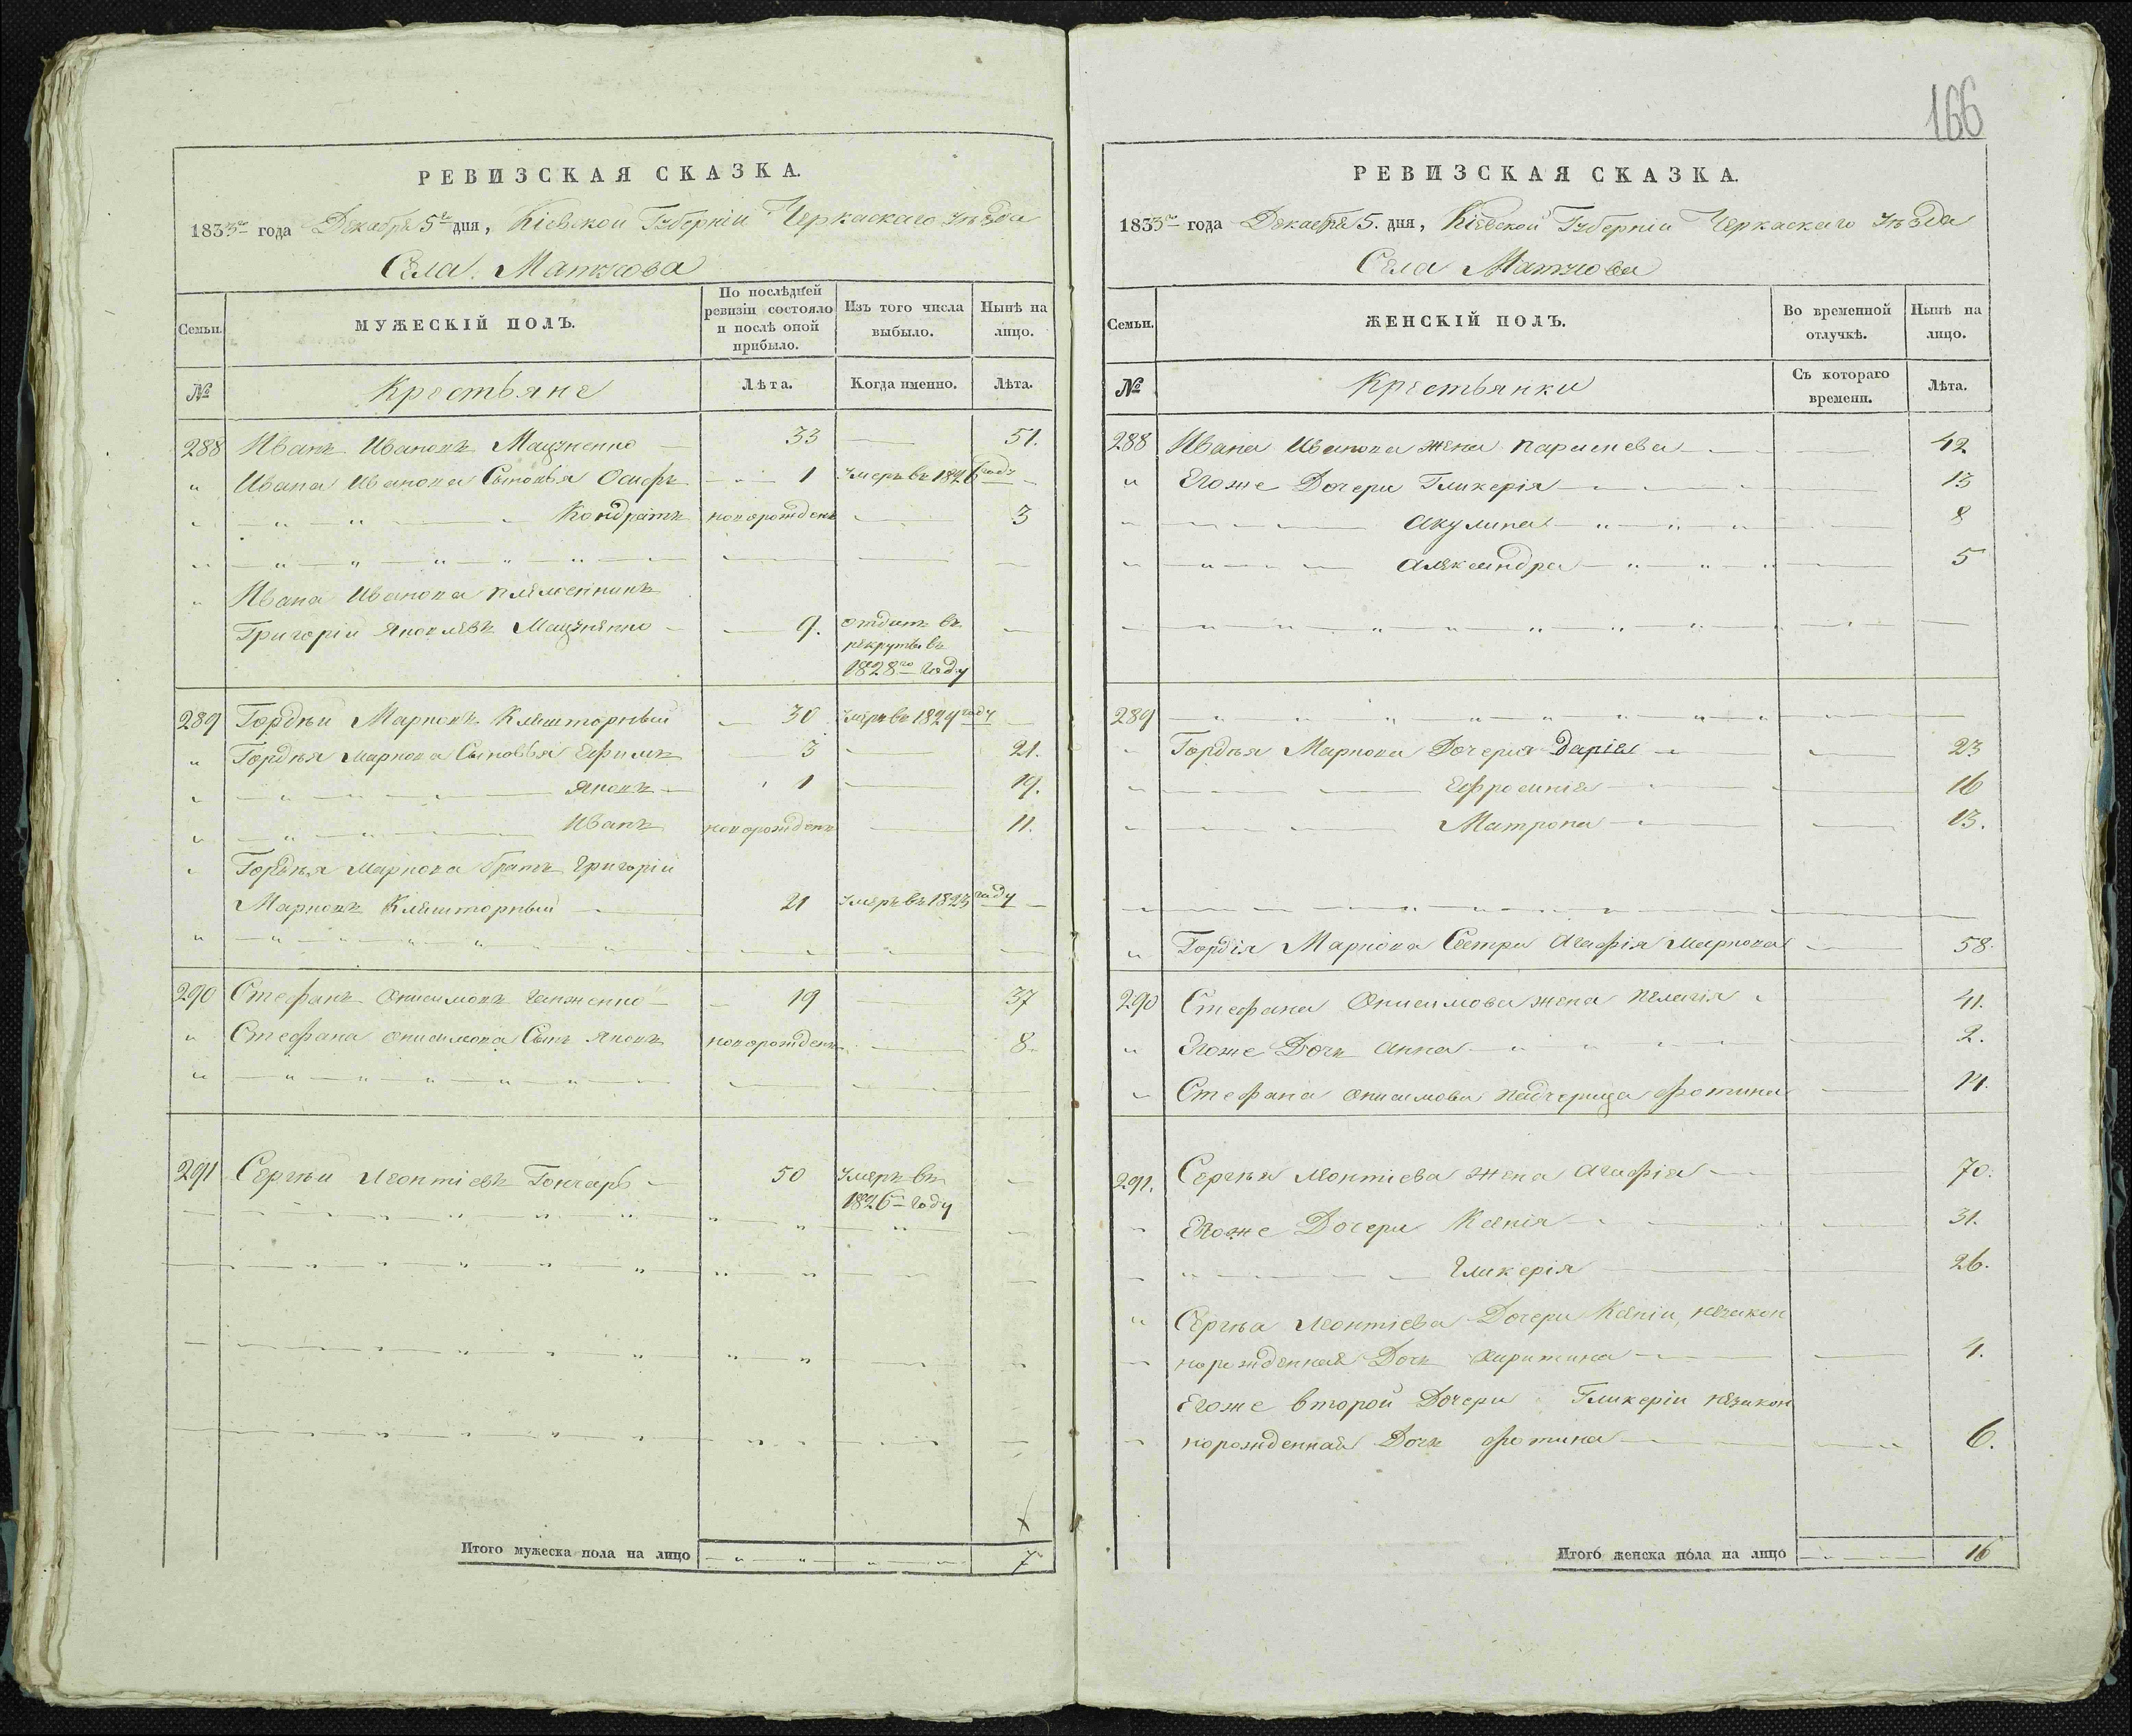 РЕВИЗСКАЯ СКАЗКА.
1833го года Декабря 5го дня, Кіевской Губерніи Черкаскаго уѣзда
Села
Семьи.
МУЖЕСКІЙ ПОЛЪ.
По послѣдней ревизіи состояло и послѣ оной прибыло.
Изъ того числа выбыло.
Нынѣ на лицо.
№
Крестьяне
Лѣта.
Когда именно.
Лѣта.
288 Иванъ Ивановъ Мацненко 33 51.
" Ивана Иванова Сыновья Осифъ 1 умеръ въ 1826 году
Кондратъ новорожденъ 3
Ивана Иванова племенникъ
Григорій Яковлевъ Мацненко 9. отданъ въ
рекруты въ
1828го году
289 Гордѣй Марковъ Клишторный 30 умеръ въ 1829 году
" Гордѣя Маркова Сыновья Ефимъ 3 21.
Яковъ 1 19.
Иванъ новорожденъ 11.
Гордѣя Маркова братъ Григорій
Марковъ Клишторный 21 умеръ въ 1823 году
290 Стефанъ Онисимовъ 19 37
" Стефана Онисимова Сынъ Яковъ новорожденъ 8
291 Сергѣй Леонтіевъ Гончаръ 50 умеръ въ
1826го году
Итого мужеска пола на лицо 7
166
РЕВИЗСКАЯ СКАЗКА.
1833го года Декабря 5. дня, Кіевской Губерніи Черкаскаго уѣзда
Села
Семьи.
ЖЕНСКІЙ ПОЛЪ.
Во временной отлучкѣ.
Нынѣ на лицо.
№
Крестьянки
Съ котораго времени.
Лѣта.
288 Ивана Иванова жена Параскева 42
" Егоже Дочери Гликерія 13
Акулина 8
Александра 5
289
Гордѣя Маркова Дочери Дарія 23
Ефросинія 16
Матрона 13.
" Гордія Маркова Сестра Агафія Маркова 58.
290 Стефана Онисимова жена Пелагія 41.
" Егоже Дочь Анна 2.
Стефана Онисимова падчерица Фотина 14.
291. Сергѣя Леонтіева жена Агафія 70.
Егоже Дочери Ксенія 31.
Гликерія 26.
" Сергѣа Леонтіева Дочери Ксеніи, незакон
норожденная Дочь 4.
Егоже второй Дочери Гликеріи незакон
норожденная Дочь Фотина 6.
Итого женска пола на лицо 16